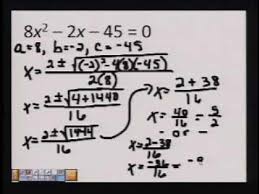 8x² − 2x − 45 = 0
a=8, b=-2, c=-45
x= 2±√(-2)²-4(8)(-45)
2(8)
x= 2±√4+1440
16
x= 2±√1444
16
x= 2+38
16
x= 40 = 5
16 2
-or-
x= 2-38
16
x= -36 = -9
16